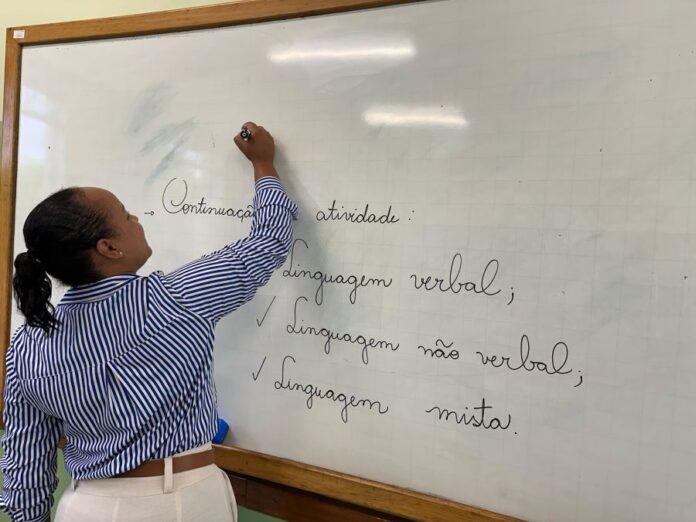 → Continuação atividade :
Linguagem verbal;
✓ Linguagem não verbal;
✓ Linguagem mista.